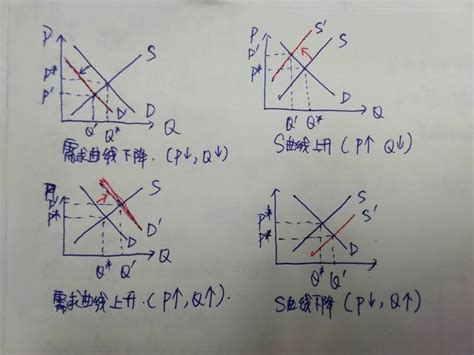 P
S
P*
P'
D'
D
Q' Q*
Q
需求曲线下降.(P↓, Q↓)
P
S'
P'
S
P*
D
Q' Q*
Q
S曲线上升(P↑ Q↓)
S
P'
P*
D'
D
Q* Q'
Q
需求曲线上升.(P↑, Q↑).
S
S'
P*
D
Q* Q'
S曲线下降(P↓, Q↑)